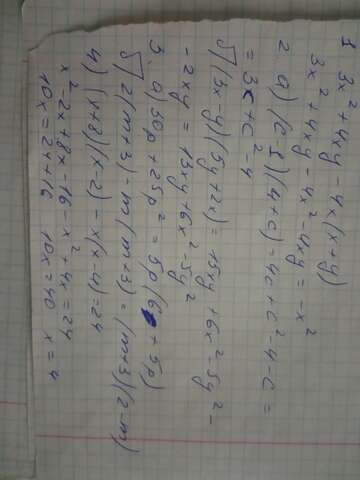 1 3x²+4xy-4x(x+y)
3x²+4xy-4x²-4xy=-x²
2 а) (c-1)(4+c)=4c+c²-4-c=
=3c+c²-4
б) (3x-y)(5y+2x)=15xy+6x²-5y²-
-2xy=13xy+6x²-5y²
3. а) 30p+25p²=5p(6+5p)
б) 2(m+3)-m(m+3)=(m+3)(2-m)
4) (x+8)(x-2)-x(x-4)=24
x²-2x+8x-16-x²+4x=24
10x=24+16 10x=40 x=4